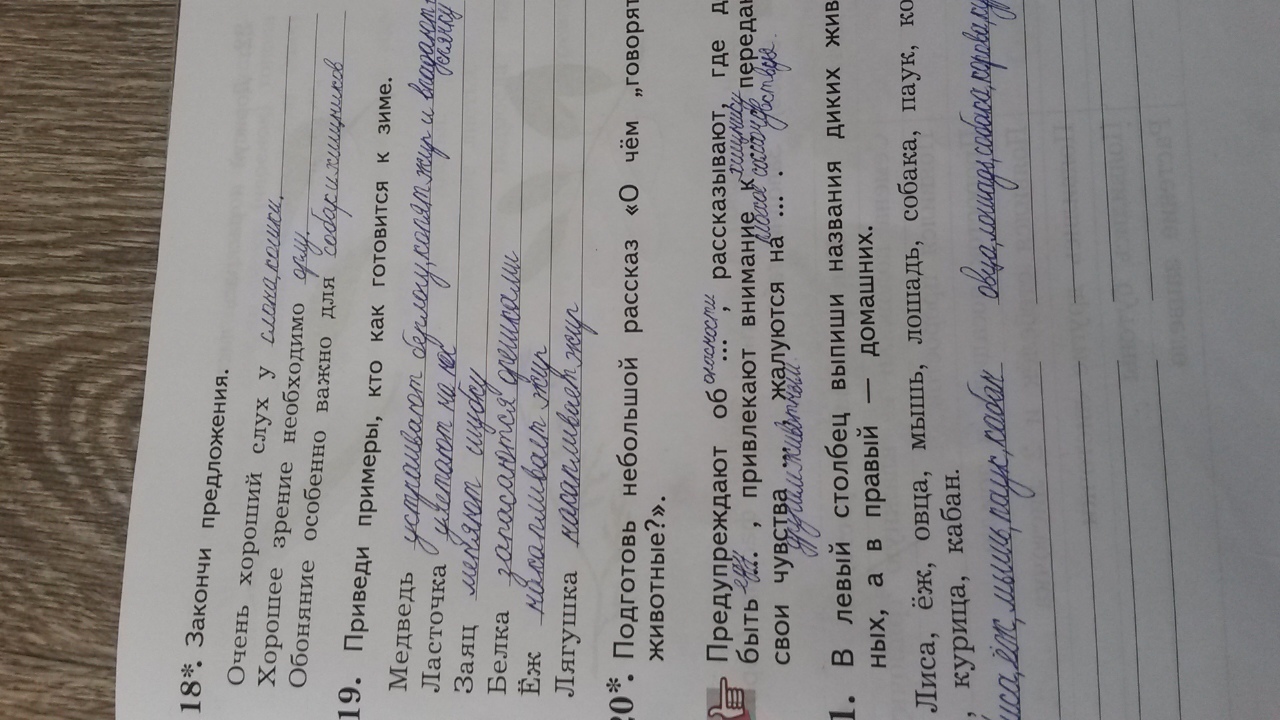 18*. Закончи предложения.
Очень хороший слух у слона, кошки,
Хорошее зрение необходимо
Обоняние особенно важно для собаки, хищников
19. Приведи примеры, кто как готовится к зиме.
Медведь устраивают берлогу, копят жир и впадают в спячку
Ласточка улетают на юг
Заяц меняют шубу
Белка запасаются орешками
Ёж накапливает жир
Лягушка накапливает жир
20*. Подготовь небольшой рассказ «О чём „говорят
животные?».
опасности
Предупреждают об ... , рассказывают, где д
быть ... , привлекают внимание к передан
свои чувства жалуются на ... .
другим животным.
1. В левый столбец выпиши названия диких жив
ных, а в правый — домашних.
Лиса, ёж, овца, мышь, лошадь, собака, паук, ко
, курица, кабан.
иса, ёж, мышь, паук, кабан
овца, лошадь, собака, корова, ку